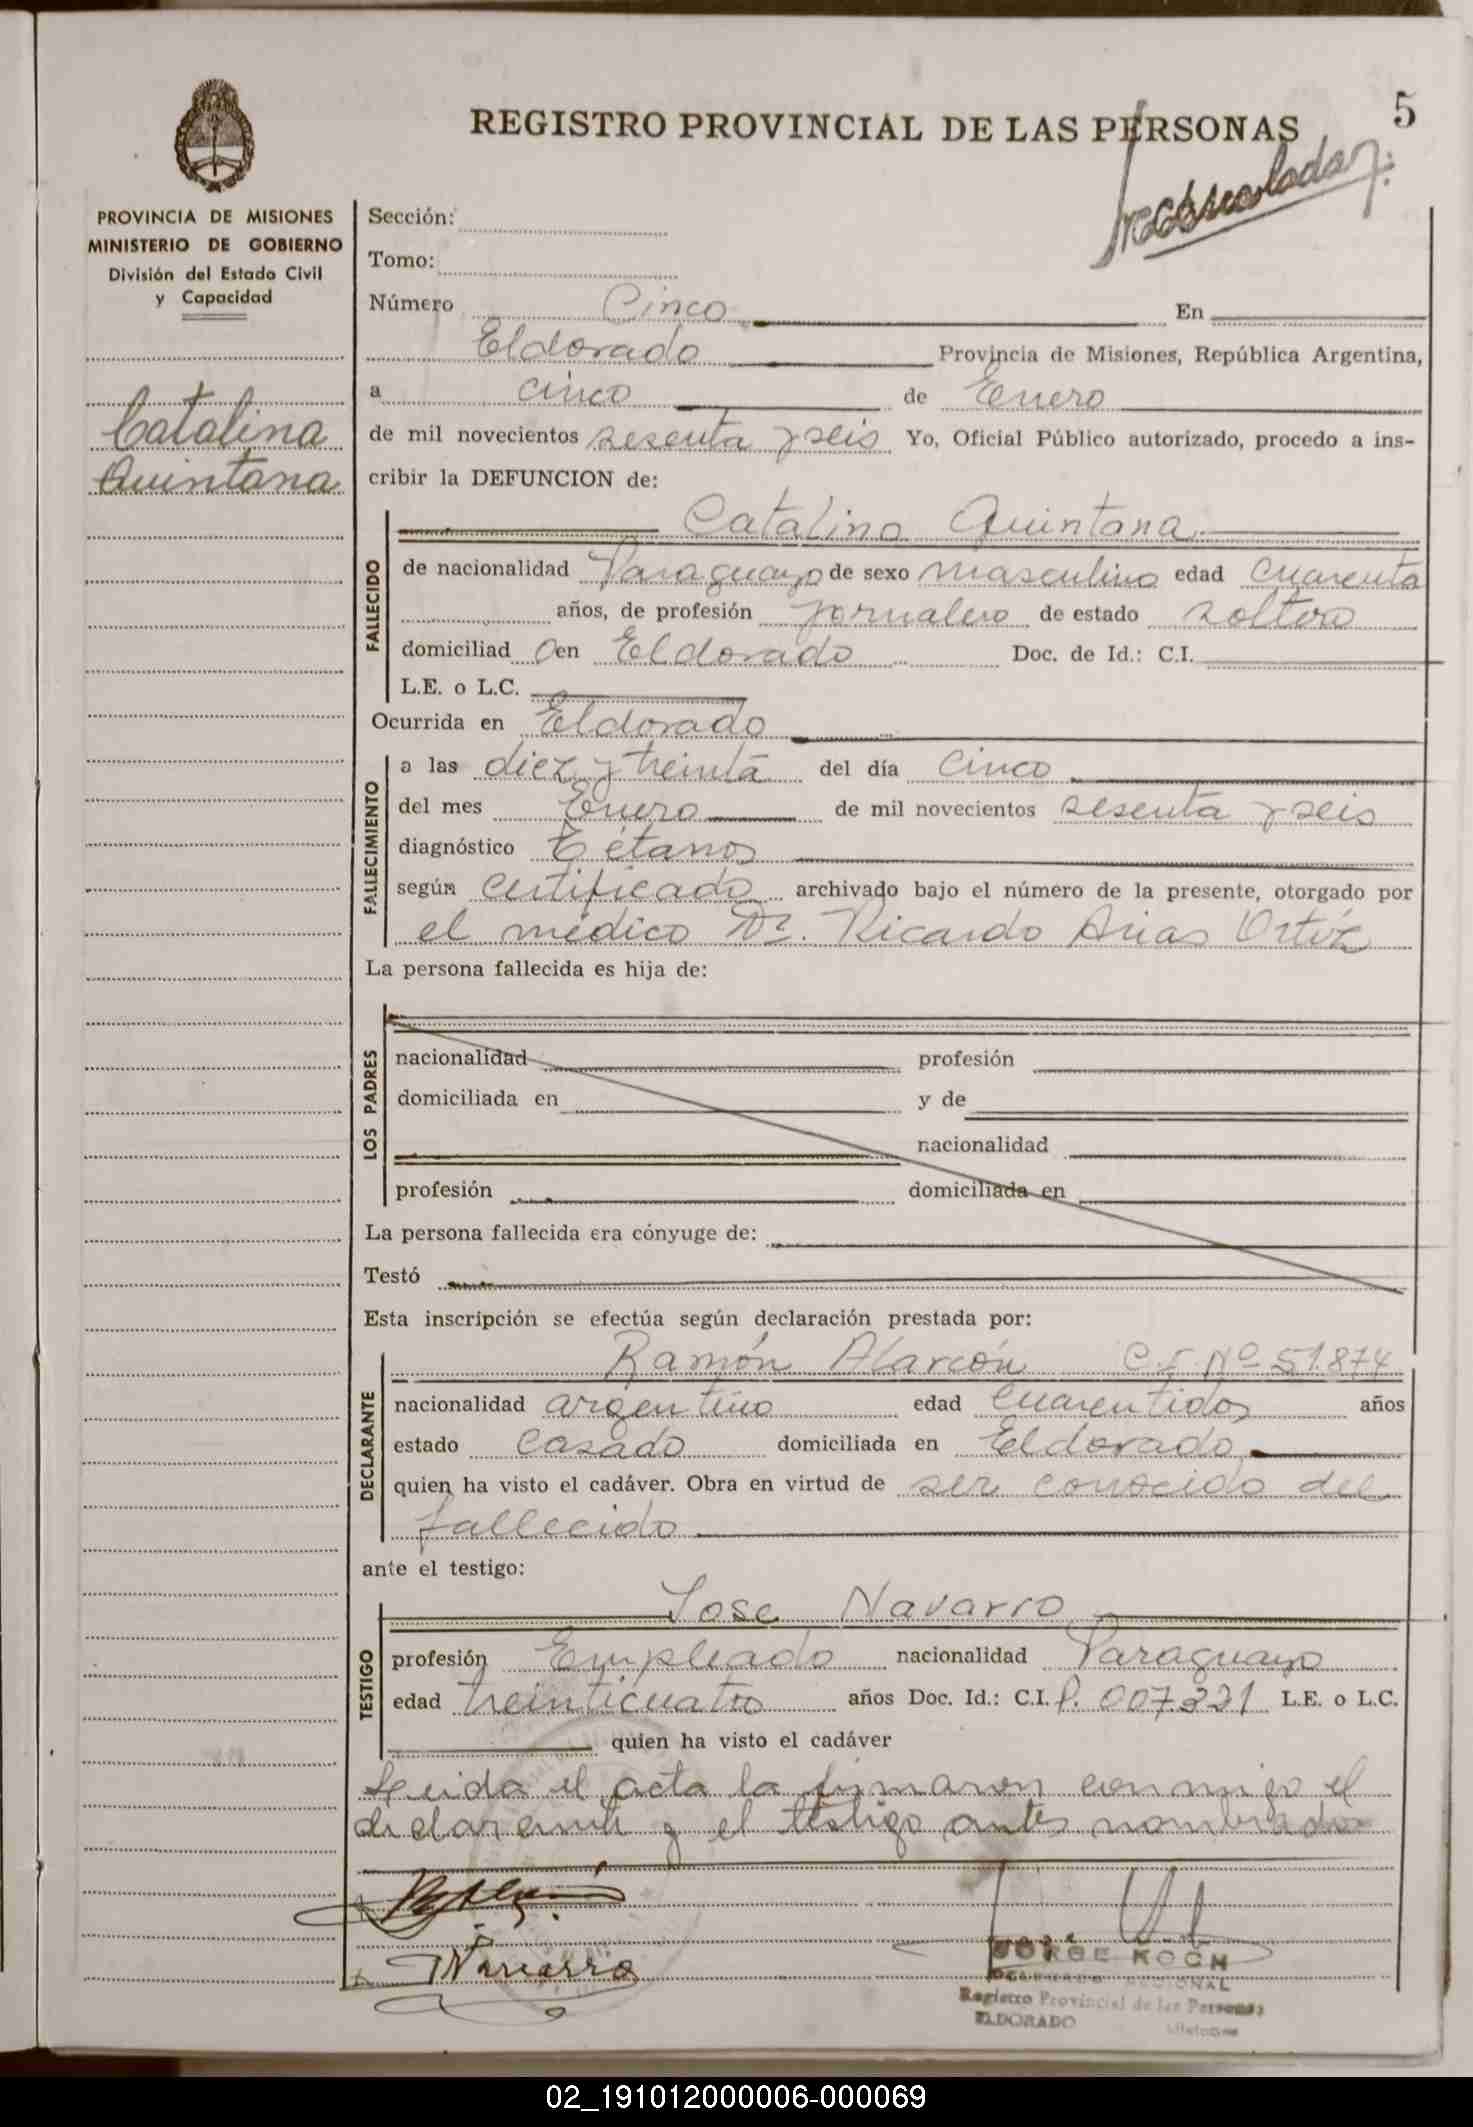 5
REGISTRO PROVINCIAL DE LAS PERSONAS
PROVINCIA DE MISIONES
MINISTERIO DE GOBIERNO
División del Estado Civil
y Capacidad
Catalina
Quintana
Sección:
Tomo:
Número Cinco En
Eldorado Provincia de Misiones, República Argentina,
a cinco de Enero
de mil novecientos sesenta y seis Yo, Oficial Público autorizado, procedo a ins-
cribir la DEFUNCION de:
FALLECIDO
Catalino Quintana
de nacionalidad Paraguayo de sexo masculino edad cuarenta
años, de profesión jornalero de estado soltero
domiciliad o en Eldorado Doc. de Id.: C.I.
L.E. o L.C.
Ocurrida en Eldorado
FALLECIMIENTO
a las diez y treinta del día cinco
del mes Enero de mil novecientos sesenta y seis
diagnóstico Tétanos
según Certificado archivado bajo el número de la presente, otorgado por
el médico Dr. Ricardo Arias Ortíz
La persona fallecida es hija de:
LOS PADRES
nacionalidad profesión
domiciliada en y de
nacionalidad
profesión domiciliada en
La persona fallecida era cónyuge de:
Testó
Esta inscripción se efectúa según declaración prestada por:
DECLARANTE
Ramón Alarcón C.I. Nº 51.874
nacionalidad argentino edad cuarentidos años
estado Casado domiciliada en Eldorado
quien ha visto el cadáver. Obra en virtud de ser conocido del
fallecido
ante el testigo:
TESTIGO
Jose Navarro
profesión Empleado nacionalidad Paraguayo
edad treinticuatro años Doc. Id.: C.I. P. 007.331 L.E. o L.C.
quien ha visto el cadáver
Leida el acta la firmaron conmigo el
declarante y el testigo antes nombrados
J Navarro
JORGE KOCH
DELEGADO REGIONAL
Registro Provincial de las Personas
ELDORADO Misiones
02_191012000006-000069